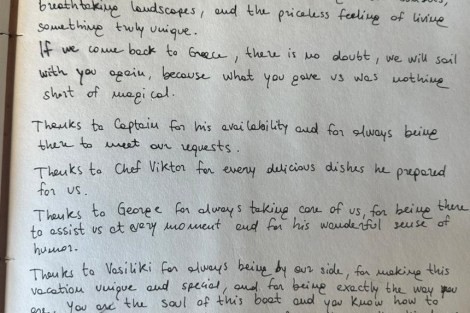 breathtaking landscapes, and the priceless feeling of living
something truly unique.
If we come back to Greece, there is no doubt, we will sail
with you again, because what you gave us was nothing
short of magical.
Thanks to Captain for his availability and for always being
there to meet our requests.
Thanks to Chef Viktor for every delicious dishes he prepared
for us.
Thanks to George for always taking care of us, for being there
to assist us at every moment and for his wonderful sense of
humor.
Thanks to Vasiliki for always being by our side, for making this
vacation unique and special, and for being exactly the way you
are. You are the soul of this boat and you know how to